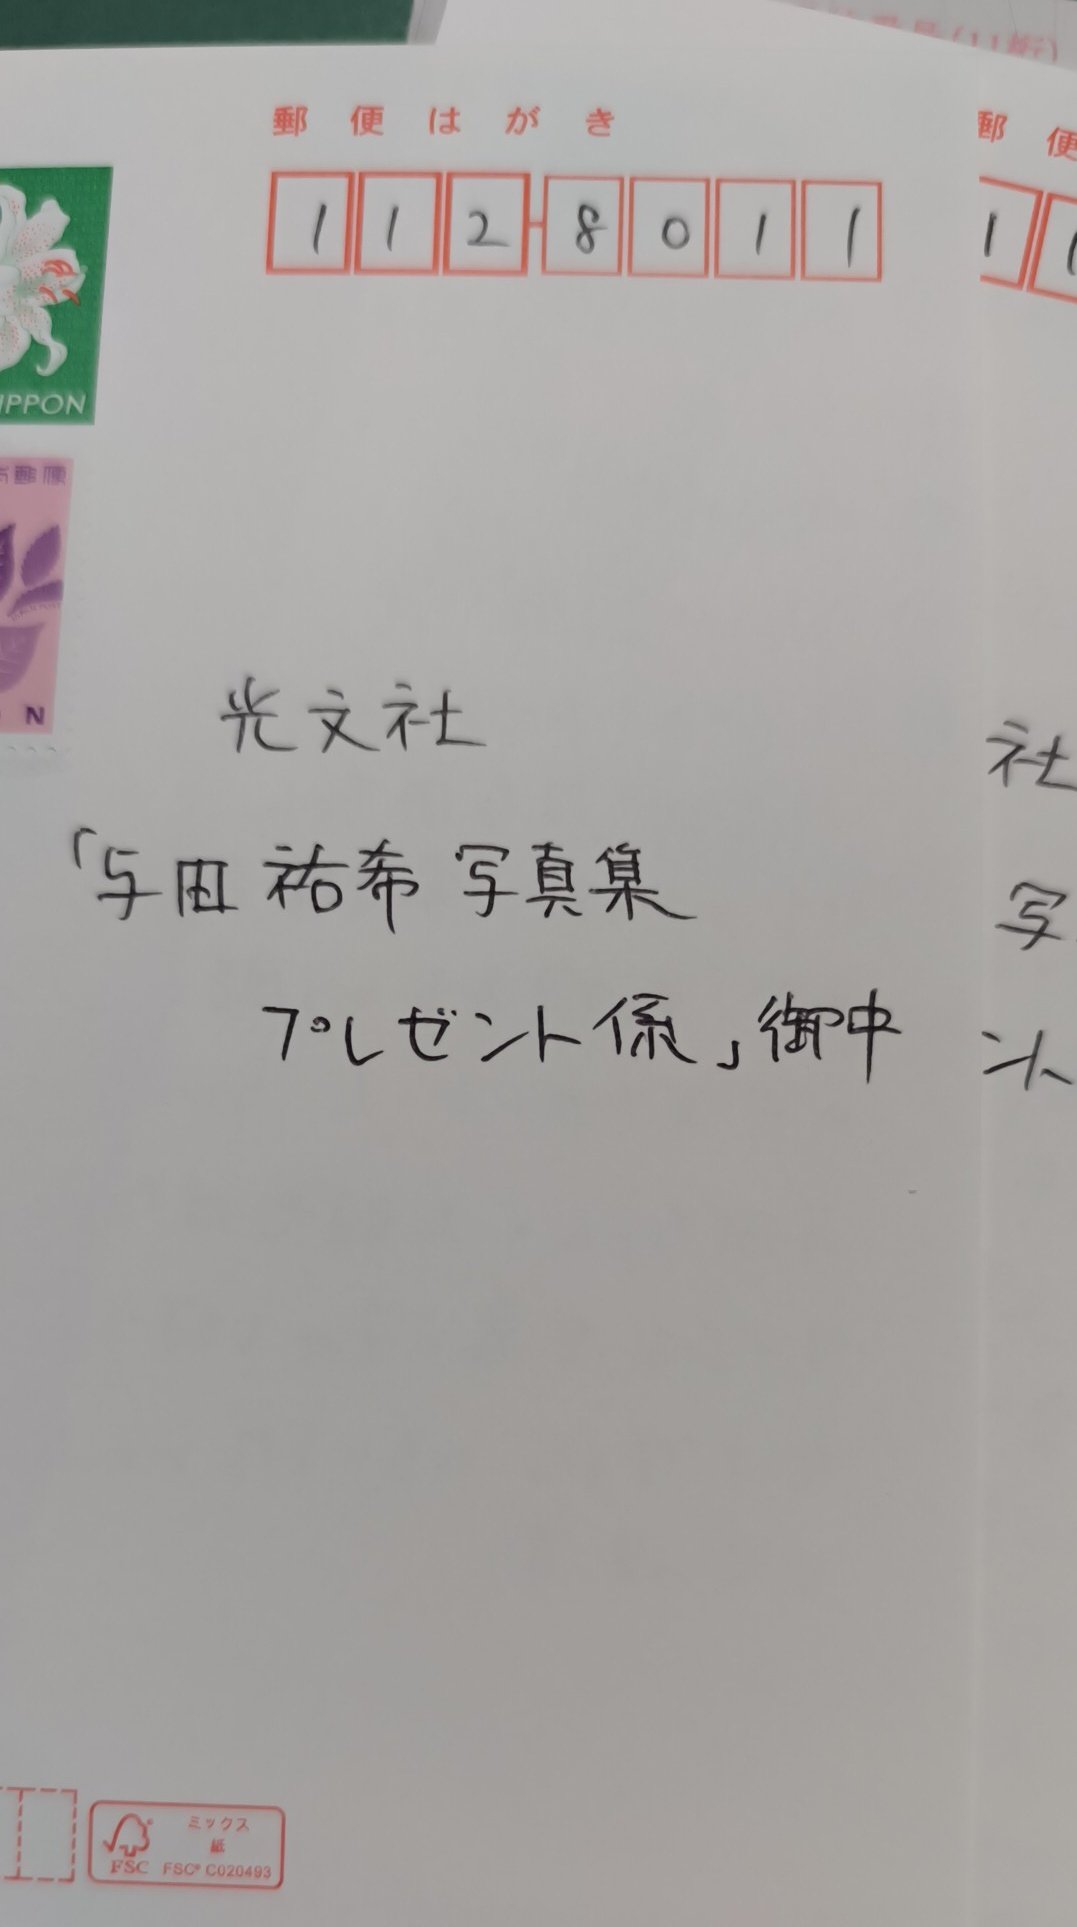 番号(11桁)
郵便はがき
112-8011
NIPPON
郵便
N
光文社
「与田祐希写真集
プレゼント係」御中
ミックス
紙
FSC FSC® C020493
郵便
11
社
写
ント